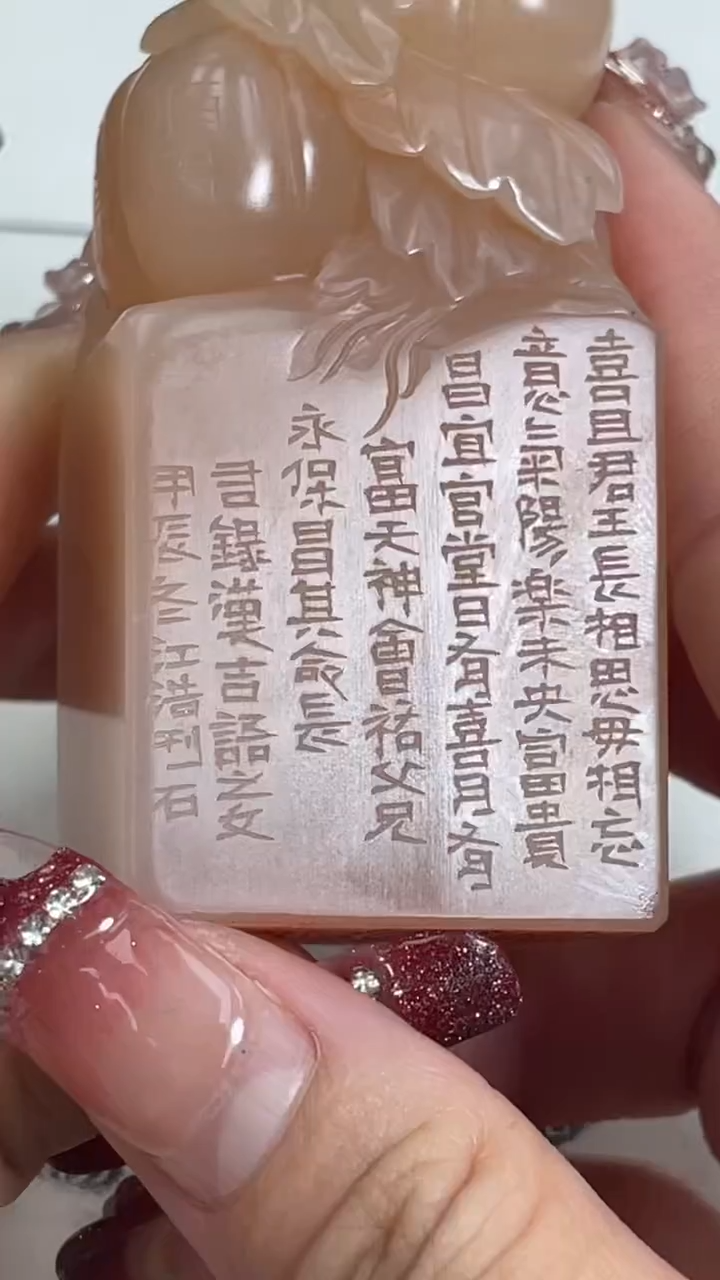 喜且君王長相思毋相忘
意三羊陽樂未央富貴
昌宜官堂日有喜月有
富天神會祐父兄
永保昌其命長
吉語之
甲辰冬江浩刊石